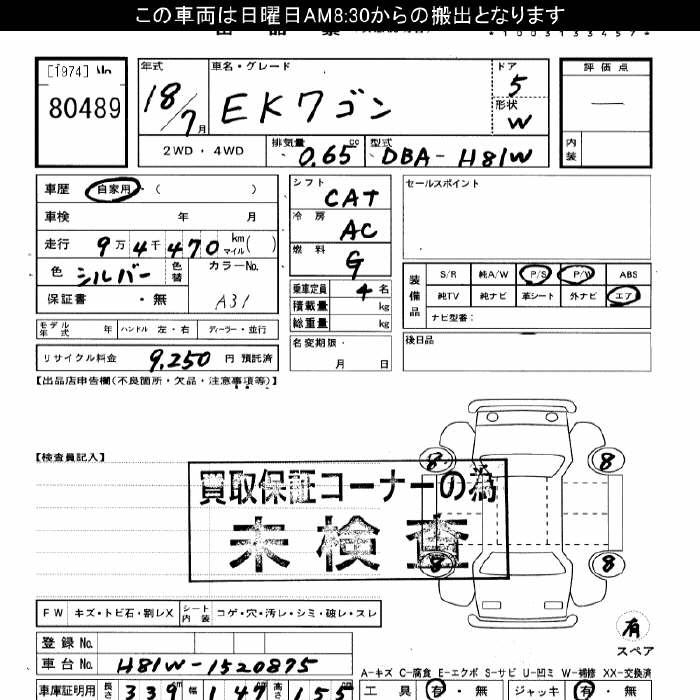 この車両は日曜日AM8:30からの搬出となります
*1003133457*
[1974] No
80489
年式 車名・グレード ドア 評価点
18/7月 EKワゴン 5 —
形状 W
2WD・4WD 排気量 0.65 cc 型式 DBA-H81W 内装
車歴 自家用 ( )
車検 年 月
走行 9万4千470 km マイル( )
色 シルバー 色替 カラーNo. A31
保証書 ・無
モデル年式 年 ハンドル 左・右 ディーラー・並行
リサイクル料金 9,250 円 預託済
シフト CAT
冷房 AC
燃料 G
乗車定員 4 名
積載量 kg
総重量 kg
名変期限・ 月 日
セールスポイント
装備品 S/R 純A/W P/S P/W ABS
純TV 純ナビ 革シート 外ナビ エア
ナビ型番:
後日品
【出品店申告欄(不良箇所・欠品・注意事項等)】
【検査員記入】
買取保証コーナーの為
未検査
8 8
8 8
有
スペア
FW キズ・トビ石・割レX シート内装 コゲ・穴・汚レ・シミ・破レ・スレ
登録 No.
車台 No. H81W-1520875
A-キズ C-腐食 E-エクボ S-サビ U-凹ミ W-補修 XX-交換済
車庫証明用 長さ 339 幅 147 高さ 155
工具 有・無 ジャッキ 有・無